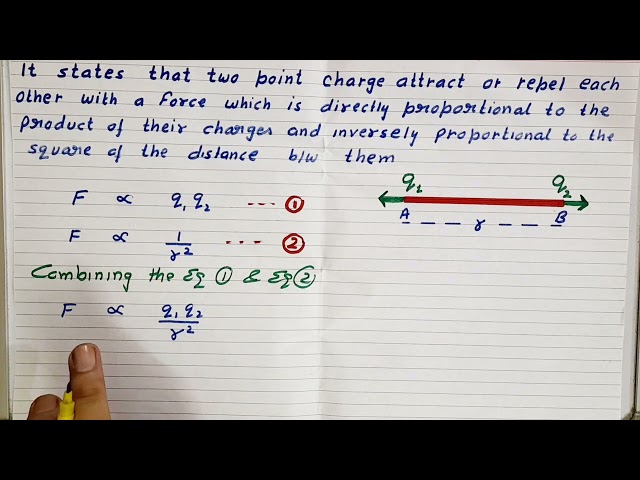 It states that two point charge attract or repel each
other with a Force which is directly proportional to the
product of their charges and inversely proportional to the
square of the distance b/w them
F ∝ q1 q2 --- ①
F ∝ 1/r² --- ②
Combining the Eq ① & Eq ②
F ∝ q1 q2/r²
q1 q2
A _ _ r _ _ _ B